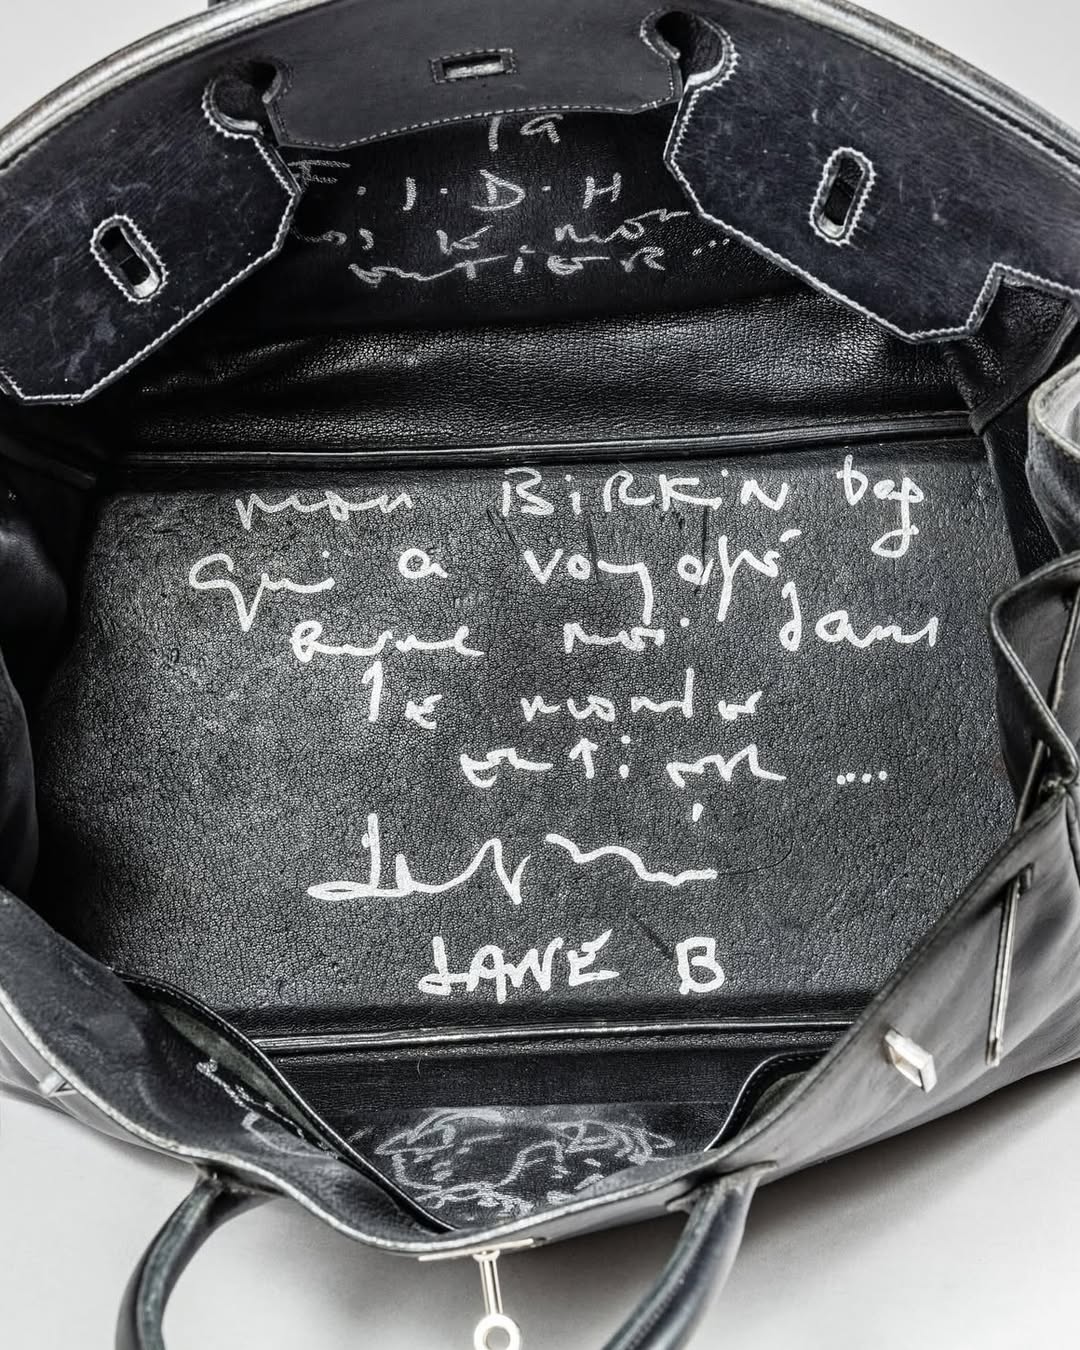 la
F.I.D.H
le
entier ...
mon BiRKiN bag
qui a voyagé
avec moi dans
le monde
entier ....
JANE B